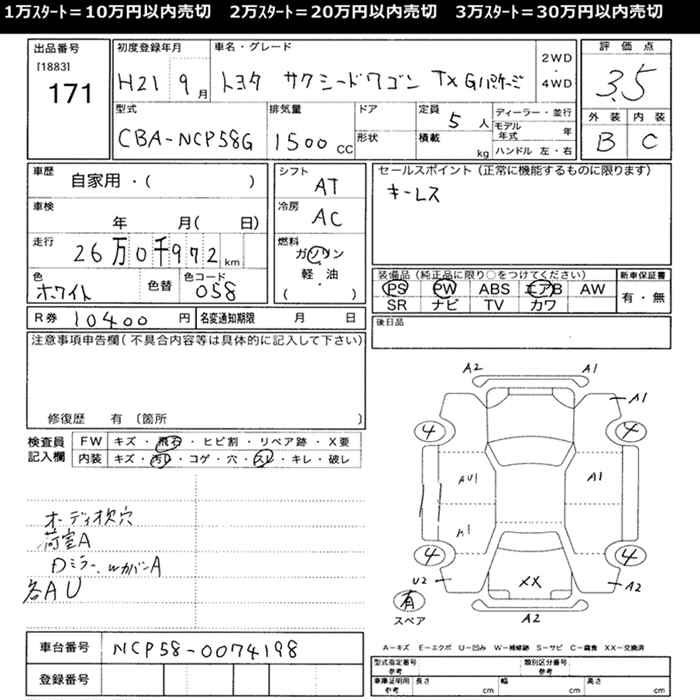 1万ｽﾀｰﾄ＝10万円以内売切　2万ｽﾀｰﾄ＝20万円以内売切　3万ｽﾀｰﾄ＝30万円以内売切
出品番号
[1883]
171
初度登録年月
H21 9月
車名・グレード
トヨタ サクシードワゴン TX Gパケージ
2WD・4WD
評価点
3.5
型式
CBA-NCP58G
排気量
1500 CC
ドア
形状
定員 5人
積載 kg
ディーラー・並行
モデル年式 年
ハンドル 左・右
外装 内装
B C
車歴
自家用・( )
車検
年 月( 日)
走行
26万0千972km
色
ホワイト
色替
色コード
058
シフト
AT
冷房
AC
燃料
ガソリン
・
軽・油
( )
セールスポイント(正常に機能するものに限ります)
キーレス
装備品(純正品に限り○をつけてください)
PS PW ABS エアB AW
SR ナビ TV カワ
新車保証書
有・無
R券 10400円
名変通知期限 月 日
後日品
注意事項申告欄(不具合内容等は具体的に記入して下さい)
修復歴 有〔箇所 〕
検査員記入欄
FW キズ・飛石・ヒビ割・リペア跡・X要
内装 キズ・汚レ・コゲ・穴・スレ・キレ・破レ
オーディオ欠穴
荷室A
Dミラー、WカバーA
各AU
A2 A1
A1
4 4
AU1 A1
4 4
U2 XX A2
有
スペア
A2
A－キズ E－エクボ U－凹み W－補修跡 S－サビ C－腐食 XX－交換済
車台番号
NCP58-0074198
登録番号
型式指定番号
参考
類別区分番号
参考
車庫証明用
参考
長さ cm 幅 cm 高さ cm